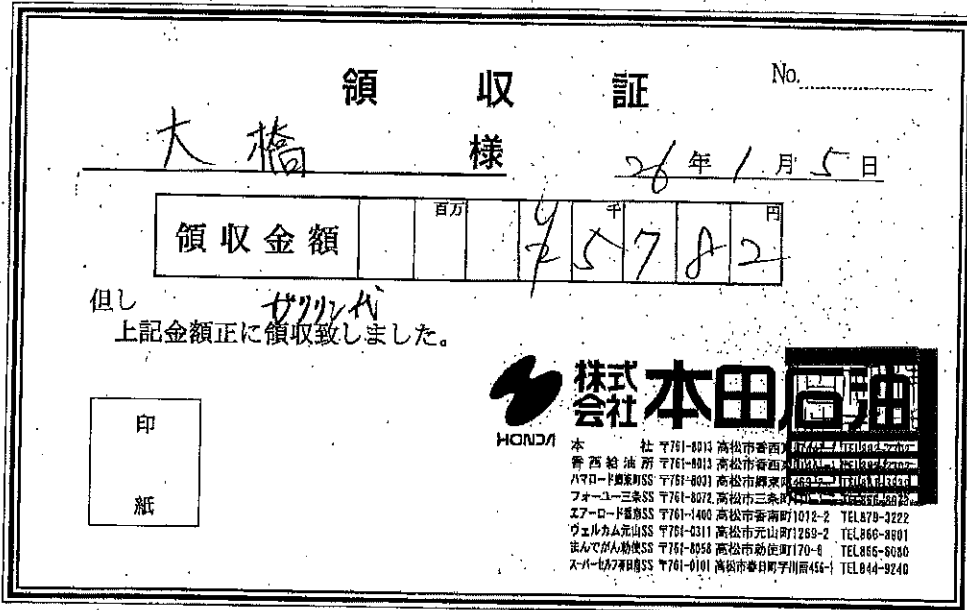 領収証
No.
大橋 様
26年1月5日
領収金額 百万 千 円
¥25782
但し ガソリン代
上記金額正に領収致しました。
印
紙
HONDA
株式会社 本田石油
本社 〒761-8013 高松市香西
香西給油所 〒761-8013 高松市香西
ハマロード郷東町SS 〒761-8031 高松市郷東
フォーユー三条SS 〒761-8072 高松市三条町
エアーロード香南SS 〒761-1400 高松市香南町1012-2 TEL879-3222
ヴェルカム元山SS 〒761-0311 高松市元山町1269-2 TEL866-8801
まんでがん勅使SS 〒761-8058 高松市勅使町170-8 TEL865-6080
スーパーセルフ春日SS 〒761-0101 高松市春日町字川西456-1 TEL844-9240